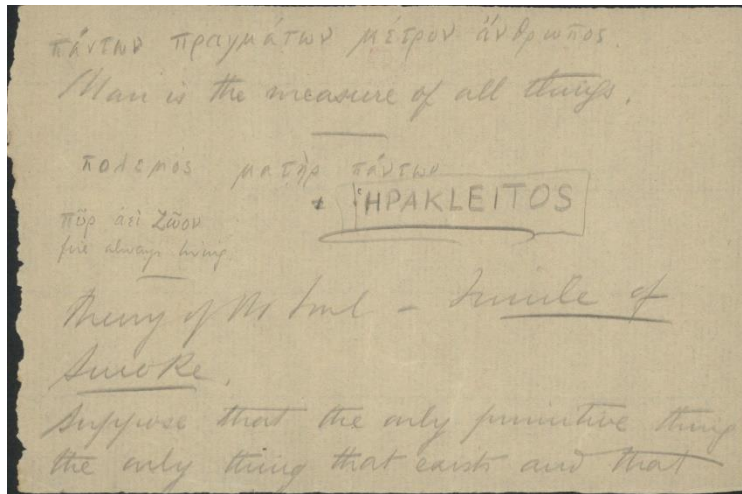 πάντων πραγμάτων μέτρον ἄνθρωπος.
Man is the measure of all things.
πολεμός ματὴρ πάντων
+ ἩΡΑKLEITOS
πῦρ ἀεὶ Ζῶον
fire always living
Theory of the Soul – Simile of
Smoke.
Suppose that the only primitive thing
the only thing that exists and that